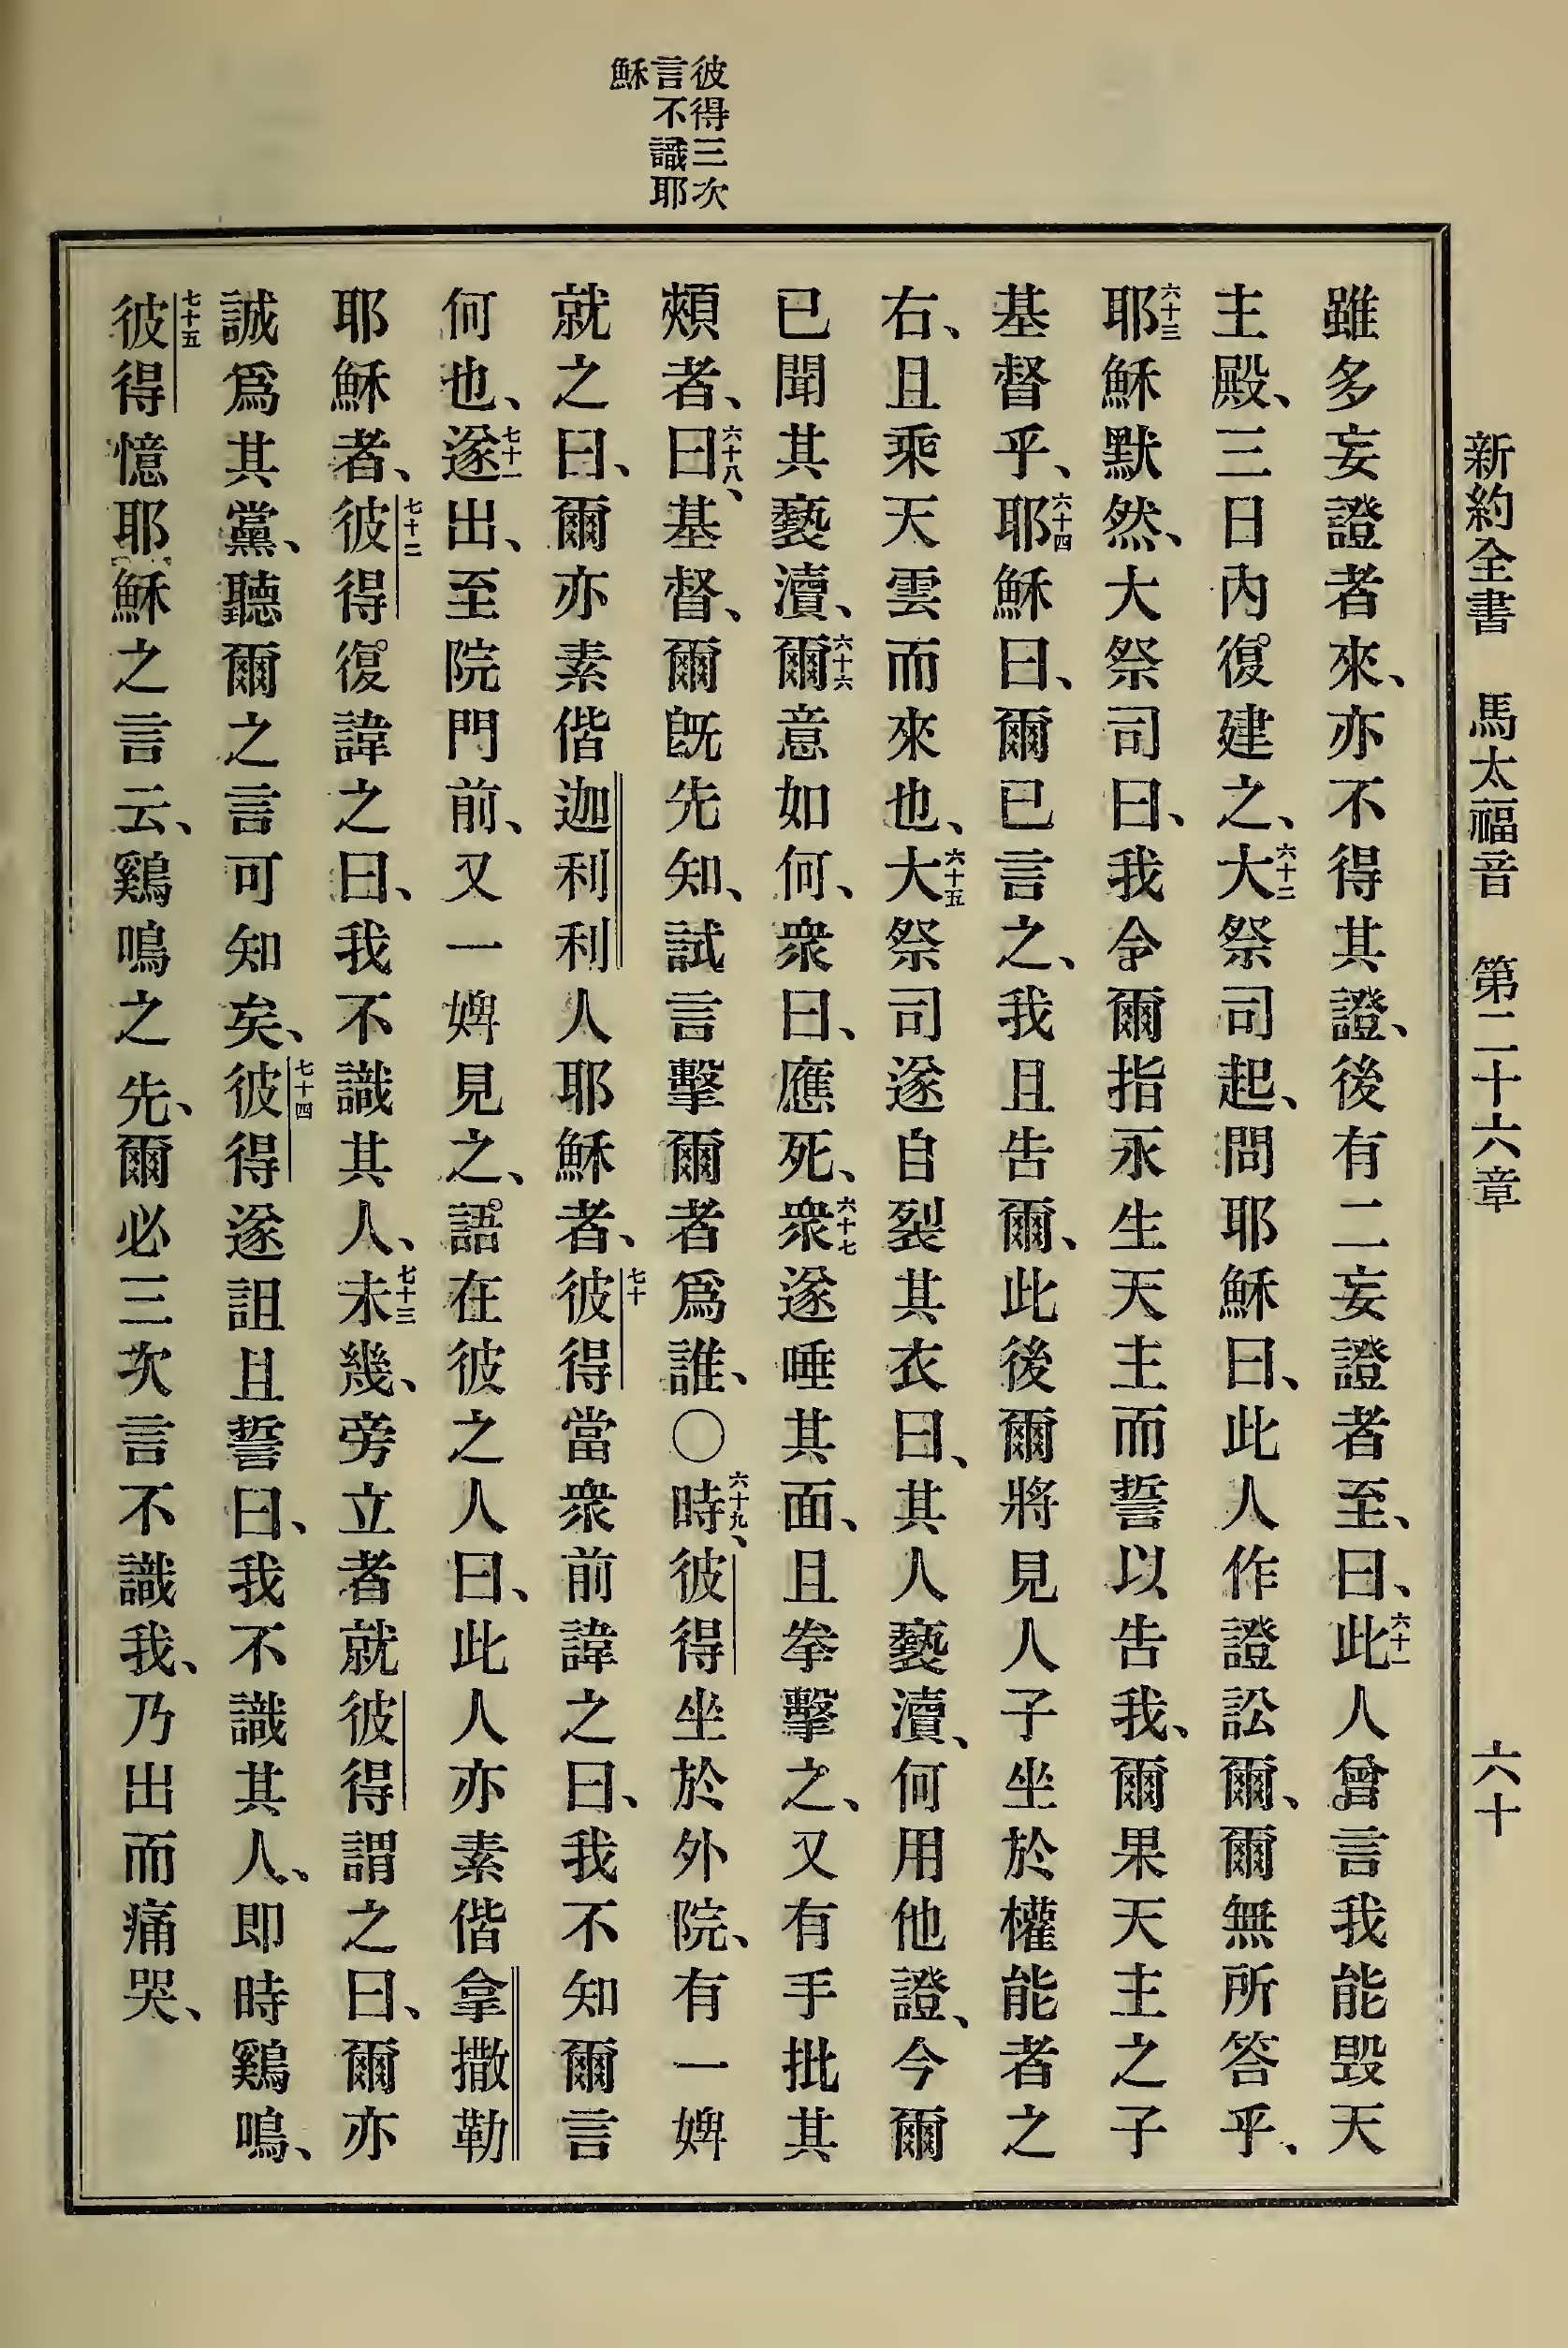 新約全書 馬太福音 第二十六章 六十
彼得三次
言不識耶
穌
雖多妄證者來、亦不得其證、後有二妄證者至、曰、六十一此人曾言我能毀天
主殿、三日內復建之、六十二大祭司起、問耶穌曰、此人作證訟爾、爾無所答乎、
六十三耶穌默然、大祭司曰、我令爾指永生天主而誓以告我、爾果天主之子
基督乎、六十四耶穌曰、爾已言之、我且告爾、此後爾將見人子坐於權能者之
右、且乘天雲而來也、六十五大祭司遂自裂其衣曰、其人褻瀆、何用他證、今爾
已聞其褻瀆、六十六爾意如何、衆曰、應死、六十七衆遂唾其面、且拳擊之、又有手批其
頰者、六十八曰、基督、爾旣先知、試言擊爾者爲誰、○六十九時、彼得坐於外院、有一婢
就之曰、爾亦素偕迦利利人耶穌者、七十彼得當衆前諱之曰、我不知爾言
何也、七十一遂出、至院門前、又一婢見之、語在彼之人曰、此人亦素偕拿撒勒
耶穌者、七十二彼得復諱之曰、我不識其人、七十三未幾、旁立者就彼得謂之曰、爾亦
誠爲其黨、聽爾之言可知矣、七十四彼得遂詛且誓曰、我不識其人、即時鷄鳴、
七十五彼得憶耶穌之言云、鷄鳴之先、爾必三次言不識我、乃出而痛哭、